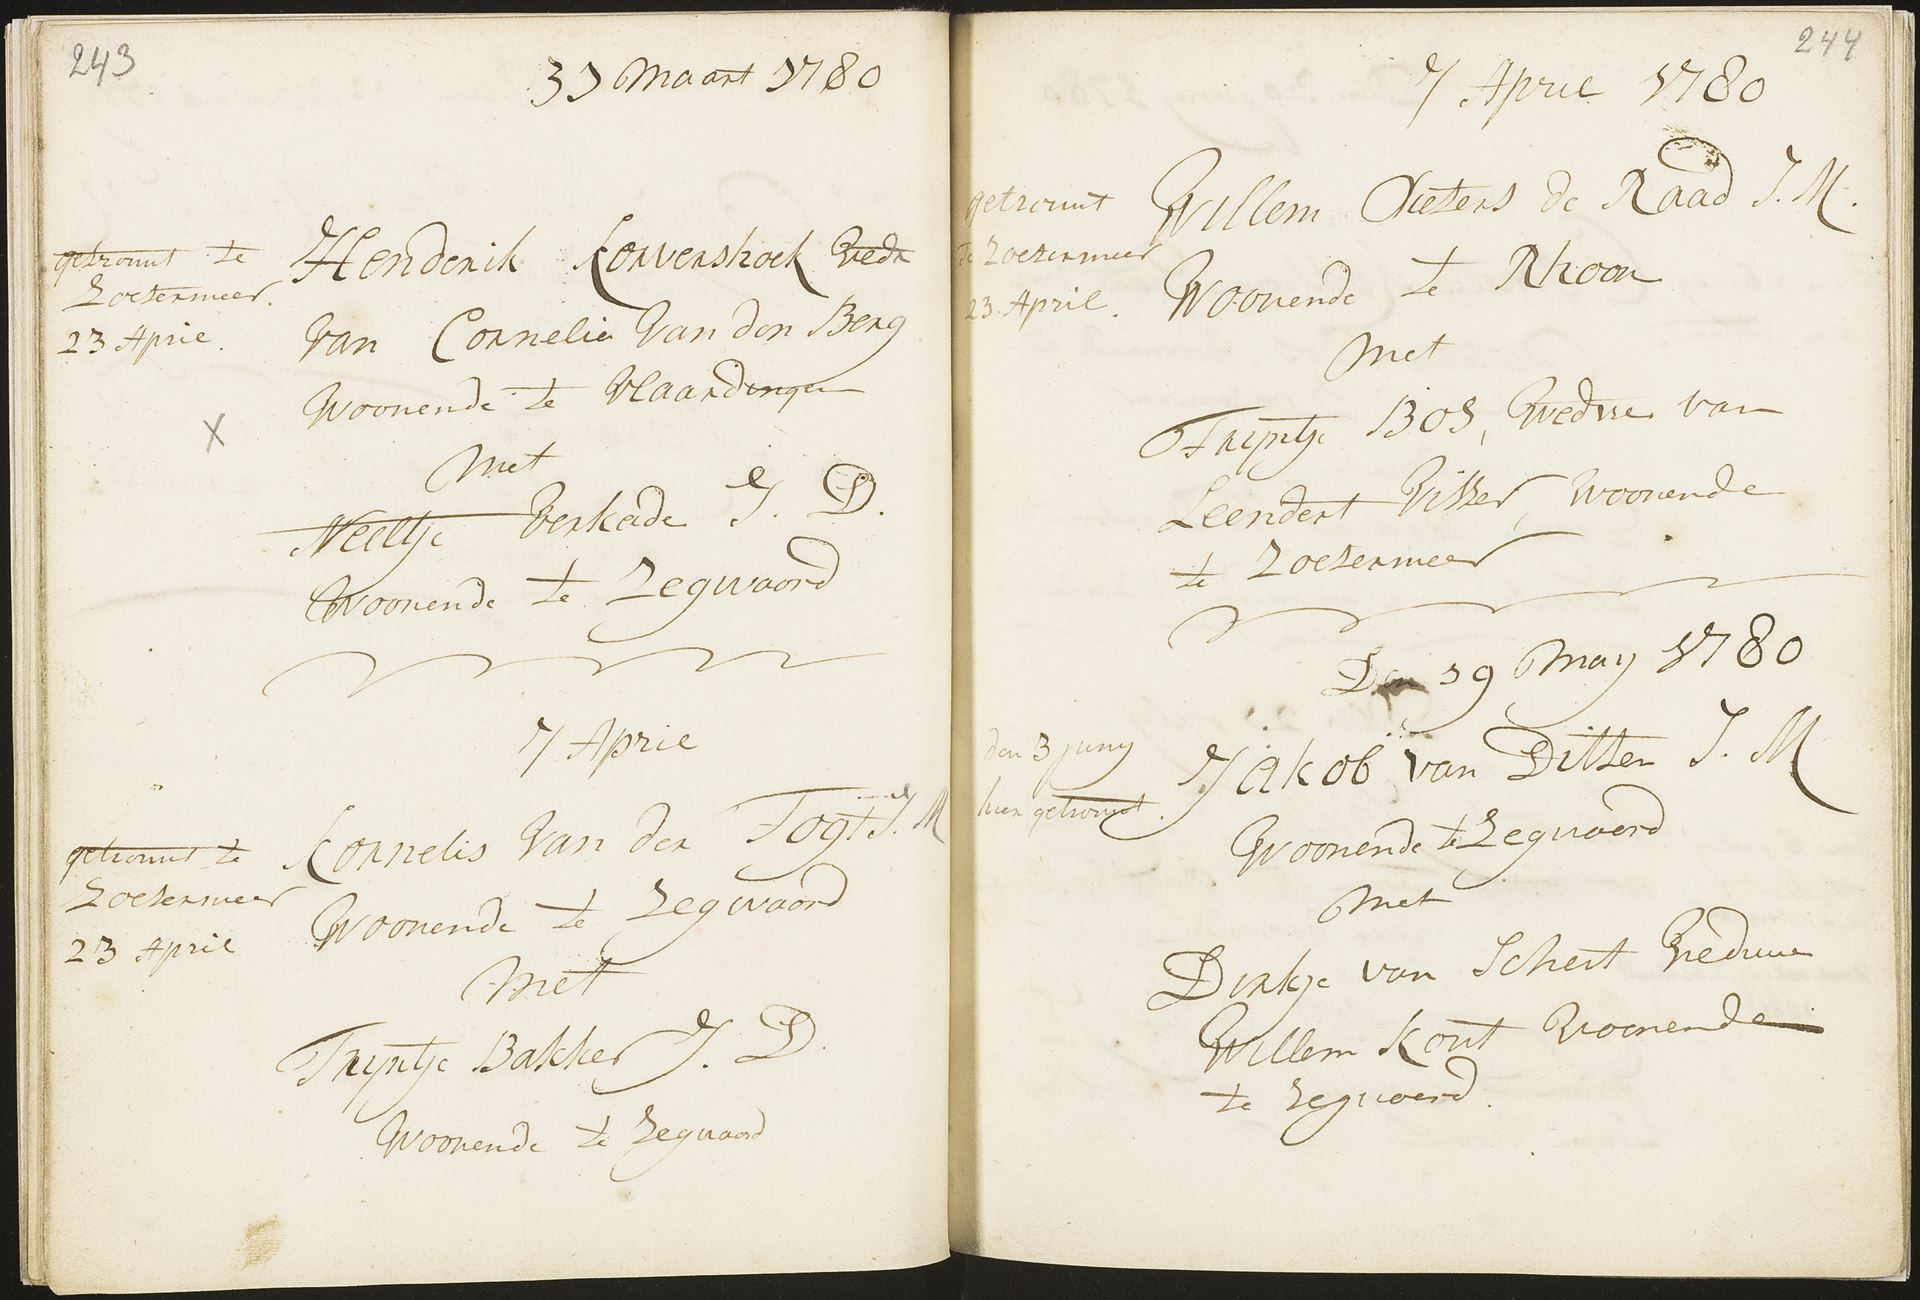 243
31 Maart 1780
getrouwt te
Zoetermeer
23 April
Henderik Korvershoek Wedr
Van Cornelia Van den Berg
Woonende te Vlaardingen
Met
Neeltje Verkade J. D.
Woonende te Zegwaard
7 April
getrouwt te
Zoetermeer
23 April
Kornelis Van der Fogt J. M
Woonende te Zegwaard
Met
Tryntje Bakker J. D.
Woonende te Zegwaard
244
7 April 1780
getrouwt
te Zoetermeer
23 April.
Willem Pieters de Raad J. M.
Woonende te Rhoon
Met
Tryntje Bos, Weduwe van
Leendert Visser, Woonende
te Zoetermeer
Den 19 May 1780
den 3 juny
hier getrouwt.
Jakob van Ditzen J. M
Woonende te Zegwaard
Met
Dirkje van Schert Weduwe
Willem Kout Woonende
te Zegwaard.